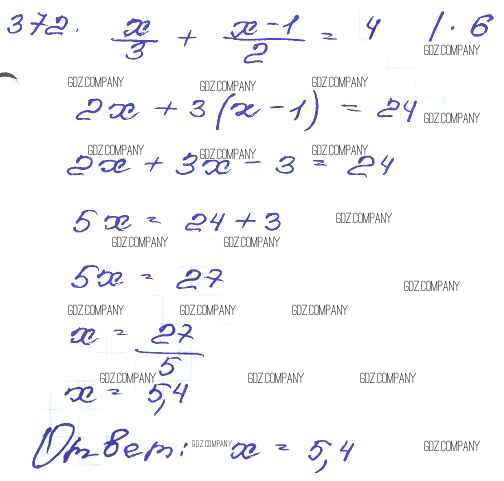 372. x/3 + (x-1)/2 = 4 |·6
GDZ.COMPANY
GDZ.COMPANY GDZ.COMPANY GDZ.COMPANY
2x + 3(x-1) = 24
GDZ.COMPANY
GDZ.COMPANY GDZ.COMPANY GDZ.COMPANY
2x + 3x - 3 = 24
5x = 24 + 3
GDZ.COMPANY
GDZ.COMPANY GDZ.COMPANY
5x = 27
GDZ.COMPANY
GDZ.COMPANY GDZ.COMPANY GDZ.COMPANY
x = 27/5
GDZ.COMPANY GDZ.COMPANY GDZ.COMPANY
x = 5,4
Ответ: x = 5,4
GDZ.COMPANY GDZ.COMPANY